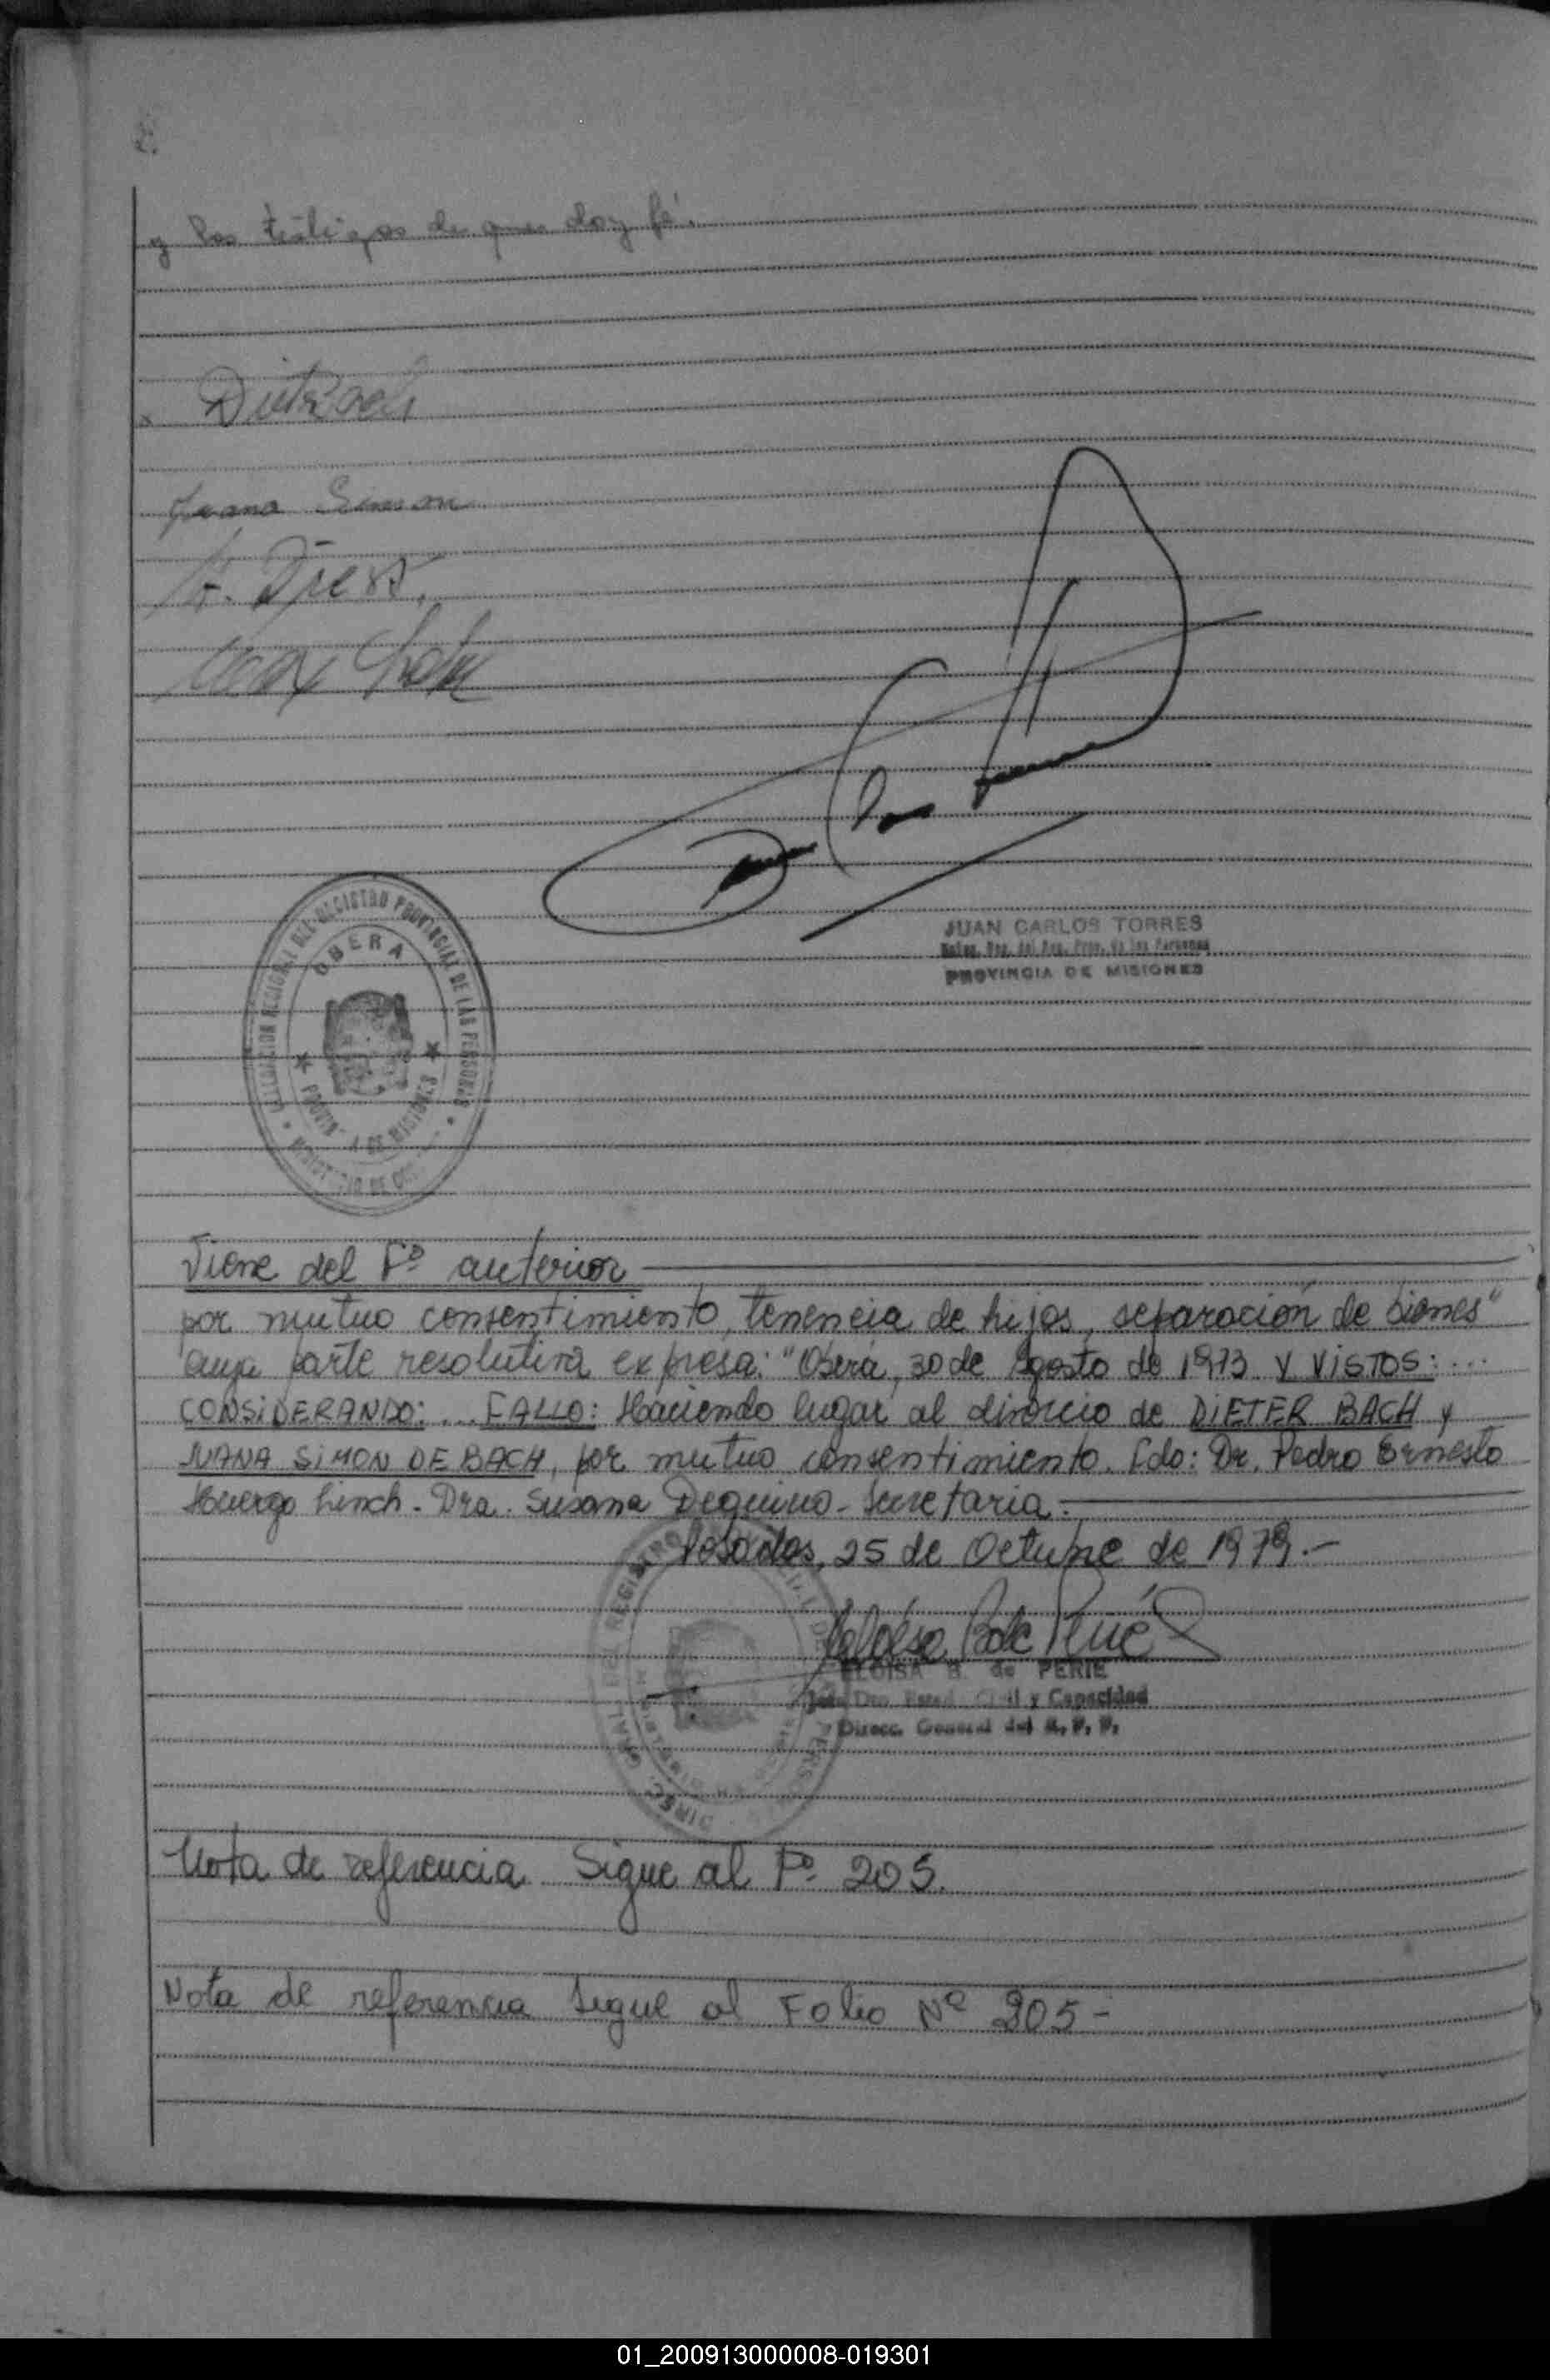 y los testigos de que doy fé.
Juana Simon
OBERA
REGISTRO PROVINCIAL DE LAS PERSONAS
JUAN CARLOS TORRES
PROVINCIA DE MISIONES
Viene del Fº anterior
por mutuo consentimiento, tenencia de hijos, separación de bienes"
cuya parte resolutiva expresa: "Oberá, 30 de Agosto de 1973 Y VISTOS: ...
CONSIDERANDO: ... FALLO: Haciendo lugar al divorcio de DIETER BACH y
JUANA SIMON DE BACH, por mutuo consentimiento. Fdo: Dr. Pedro Ernesto
Huergo Linch - Dra. Susana Dequino - Secretaria.
Posadas, 25 de Octubre de 1979.-
ELOISA B. de PERIE
Civil y Capacidad
Direcc. General del R. P. P.
Nota de referencia Sigue al Fº 205.
Nota de referencia Sigue al Folio Nº 205-
01_200913000008-019301